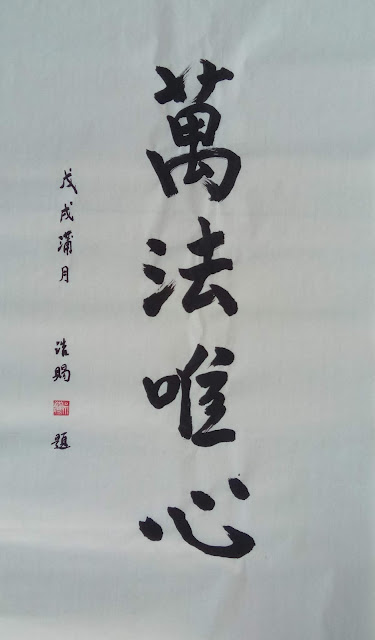 萬法唯心
戊戌蒲月 浩賜 題